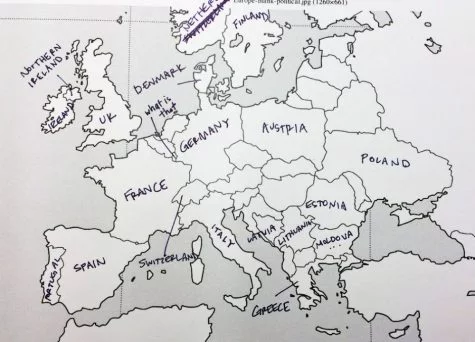 Europe-blank-political.jpg (1260×661)
FINLAND
NORTHERN
IRELAND
DENMARK
IRELAND
UK
what is
that
GERMANY
AUSTRIA
POLAND
FRANCE
ESTONIA
ITALY
LATVIA
LITHUANIA
MOLDOVA
SWITZERLAND
PORTUGAL
SPAIN
GREECE